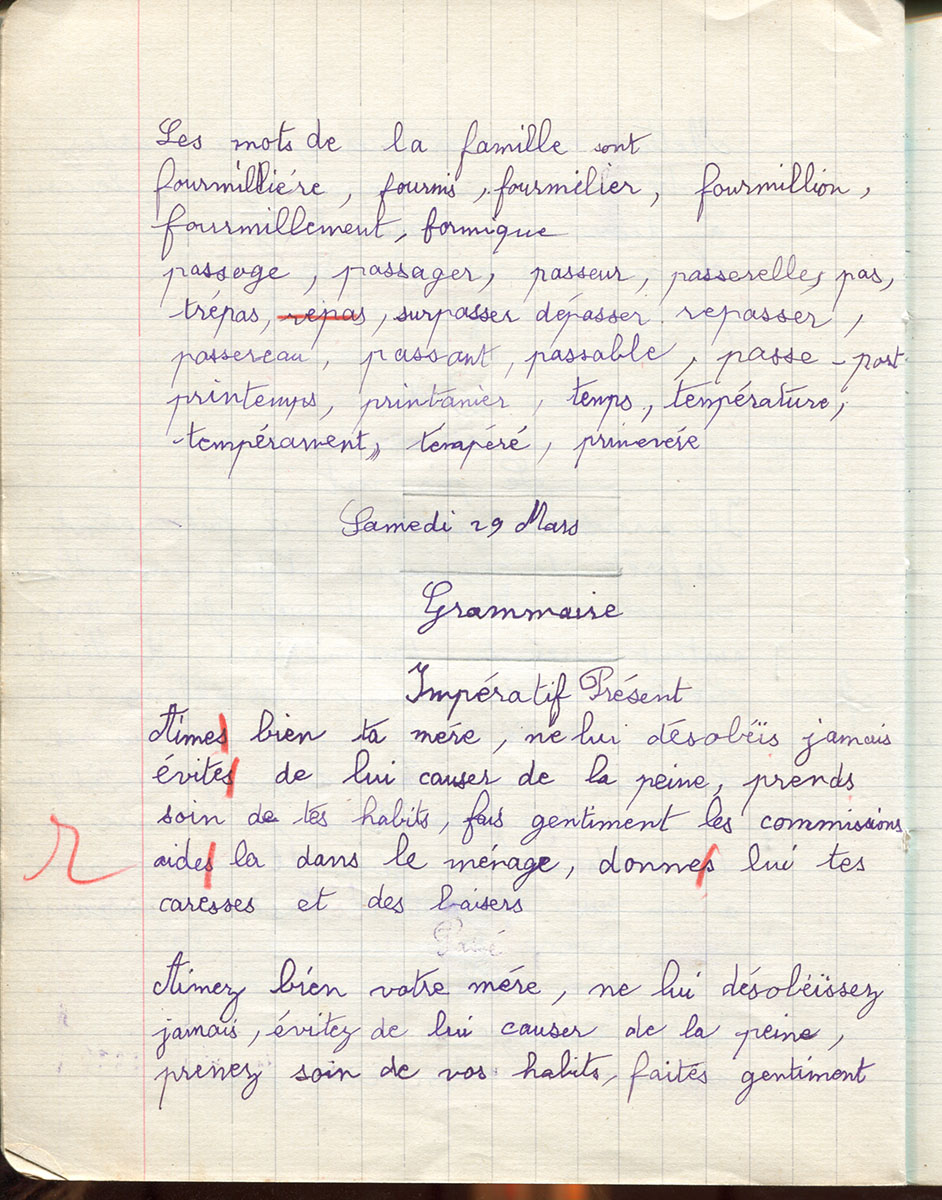 Les mots de la famille sont
fourmilliére, fourmis, fourmilier, fourmillion,
fourmillement, formique
passage, passager, passeur, passerelle, pas,
trépas, repas, surpasser dépasser repasser,
passereau, passant, passable, passe-port
printemps, printanier, temps, température,
tempérament, tempéré, primevère
Samedi 29 Mars
Grammaire
Impératif Présent
Aimes bien ta mére, ne lui désobéïs jamais
évites de lui causer de la peine, prends
soin de tes habits, fais gentiment les commissions,
aides la dans le ménage, donnes lui tes
caresses et des baisers
Aimez bien votre mére, ne lui désobéïssez
jamais, évitez de lui causer de la peine,
prenez soin de vos habits, faites gentiment